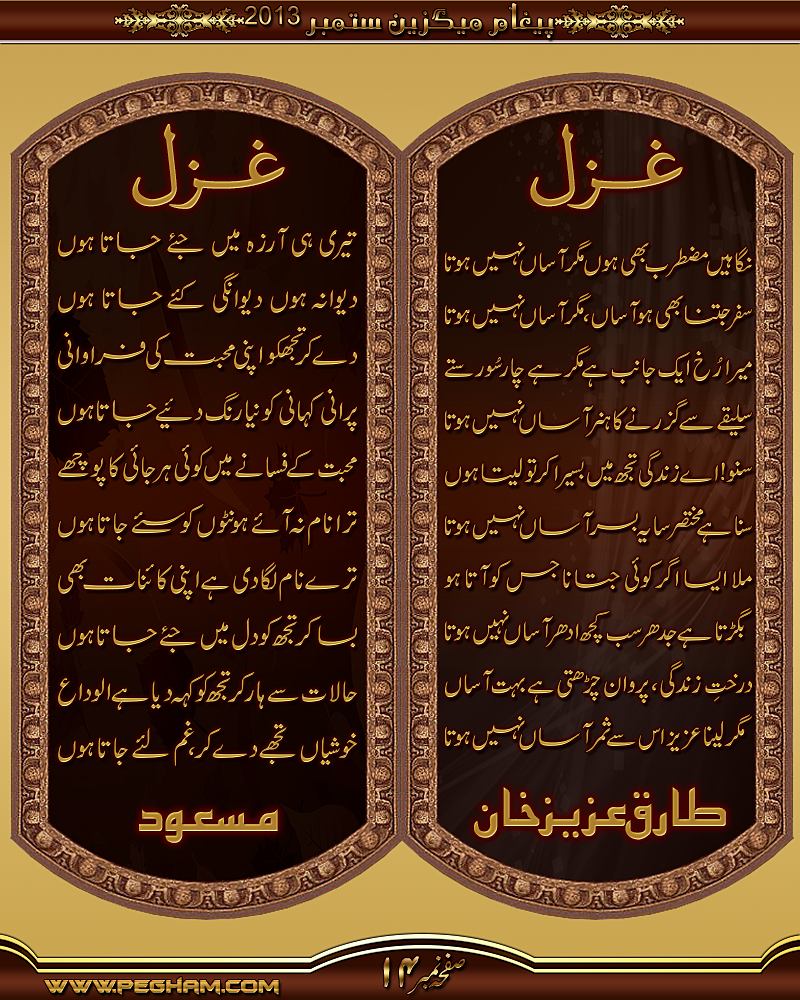 پیغام میگزین ستمبر 2013
غزل
نگاہیں مضطرب بھی ہوں مگر آساں نہیں ہوتا
سفر جتنا بھی ہو آساں، مگر آساں نہیں ہوتا
میرا رُخ ایک جانب ہے مگر ہے چار سُو رستے
سلیقے سے گزرنے کا ہنر آساں نہیں ہوتا
سنو! اے زندگی تجھ میں بسیرا کر تو لیتا ہوں
سنا ہے مختصر سایہ بسر آساں نہیں ہوتا
ملا ایسا اگر کوئی جتانا جس کو آتا ہو
بگڑتا ہے جدھر سب کچھ ادھر آساں نہیں ہوتا
درختِ زندگی، پروان چڑھتی ہے بہت آساں
مگر لینا عزیز اس سے ثمر آساں نہیں ہوتا
طارق عزیز خان
غزل
تیری ہی آرزہ میں جئے جاتا ہوں
دیوانہ ہوں دیوانگی کئے جاتا ہوں
دے کر تجھکو اپنی محبت کی فراوانی
پرانی کہانی کو نیا رنگ دئیے جاتا ہوں
محبت کے فسانے میں کوئی ہرجائی کا پوچھے
ترا نام نہ آئے ہونٹوں کو سئے جاتا ہوں
ترے نام لگا دی ہے اپنی کائنات بھی
بسا کر تجھ کو دل میں جئے جاتا ہوں
حالات سے ہار کر تجھ کو کہہ دیا ہے الوداع
خوشیاں تجھے دے کر، غم لئے جاتا ہوں
مسعود
صفحہ نمبر ۱۴
WWW.PEGHAM.COM